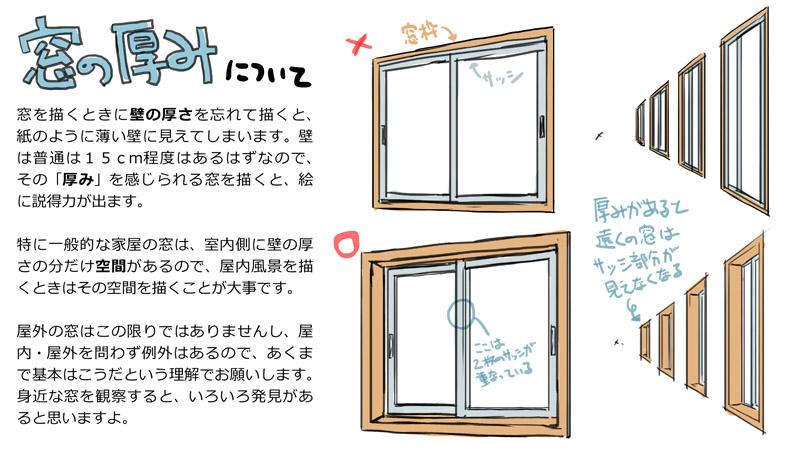 窓の厚みについて
窓を描くときに壁の厚さを忘れて描くと、
紙のように薄い壁に見えてしまいます。壁
は普通は１５ｃｍ程度はあるはずなので、
その「厚み」を感じられる窓を描くと、絵
に説得力が出ます。
特に一般的な家屋の窓は、室内側に壁の厚
さの分だけ空間があるので、屋内風景を描
くときはその空間を描くことが大事です。
屋外の窓はこの限りではありませんし、屋
内・屋外を問わず例外はあるので、あくま
で基本はこうだという理解でお願いします。
身近な窓を観察すると、いろいろ発見があ
ると思いますよ。
窓枠
サッシ
ここは
2枚のサッシが
重なっている
厚みがあると
遠くの窓は
サッシ部分が
見えなくなる